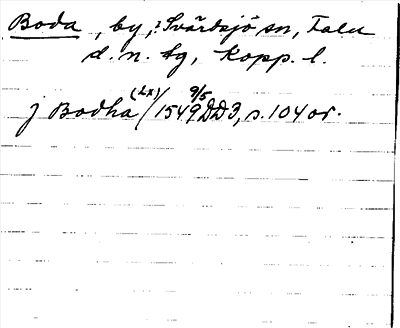 Boda, by, i Svärdsjö sn, Falu
d. n. tg, Kopp. l.
j Bodha (2x) / 1549 9/5 DD3, s. 104 or.